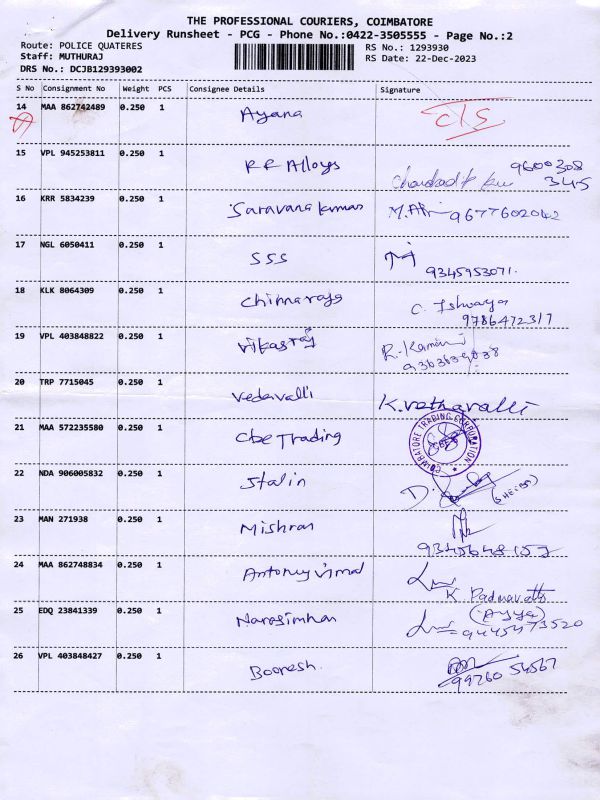 THE PROFESSIONAL COURIERS, COIMBATORE
Delivery Runsheet - PCG - Phone No.:0422-3505555 - Page No.:2
Route: POLICE QUATERES RS No.: 1293930
Staff: MUTHURAJ RS Date: 22-Dec-2023
DRS No.: DCJB129393002
S No Consignment No Weight PCS Consignee Details Signature
14 MAA 862742489 0.250 1 Ayana C/S
15 VPL 945253811 0.250 1 RR Alloys 9600308
345
16 KRR 5834239 0.250 1 Saravana kumar 9677602042
17 NGL 6050411 0.250 1 SSS
9345953071.
18 KLK 8064309 0.250 1 Chinnaraja C. Ishwarya
9786472317
19 VPL 403848822 0.250 1 Vikasraj R. Kamini
20 TRP 7715045 0.250 1 Vedavalli K.vethavalli
21 MAA 572235580 0.250 1 Cbe Trading COIMBATORE TRADING CORPORATION
22 NDA 906005832 0.250 1 Stalin
23 MAN 271938 0.250 1 Mishran
24 MAA 862748834 0.250 1 Antony vimal
K
25 EDQ 23841339 0.250 1 Narasimhan (Ayya)
9445473520
26 VPL 403848427 0.250 1 Booresh.
99760 54567